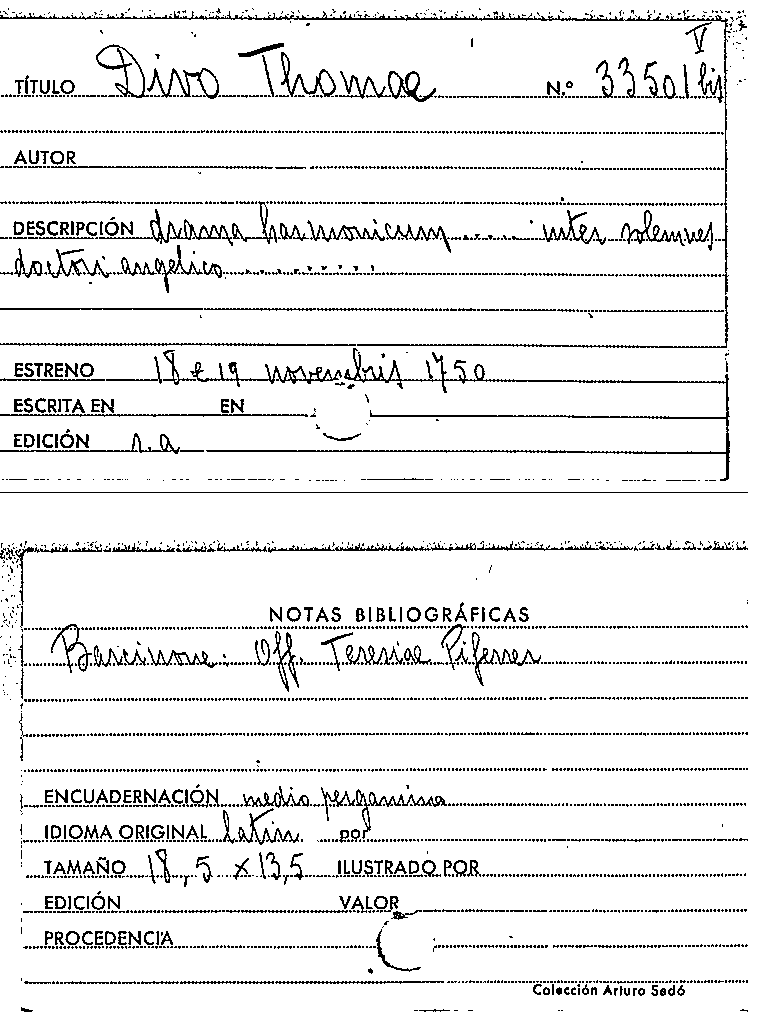 V
TÍTULO Divo Thomae N.º 33501 bis
AUTOR
DESCRIPCIÓN drama harmonicum ..... inter solemnes
doctori angelico .........
ESTRENO 18 e 19 novembris 1750
ESCRITA EN EN
EDICIÓN s.a
NOTAS BIBLIOGRÁFICAS
Barcinone: Off. Teresiae Piferrer
ENCUADERNACIÓN medio pergamino
IDIOMA ORIGINAL latin por
TAMAÑO 18,5 x 13,5 ILUSTRADO POR
EDICIÓN VALOR
PROCEDENCIA
Colección Arturo Sedó